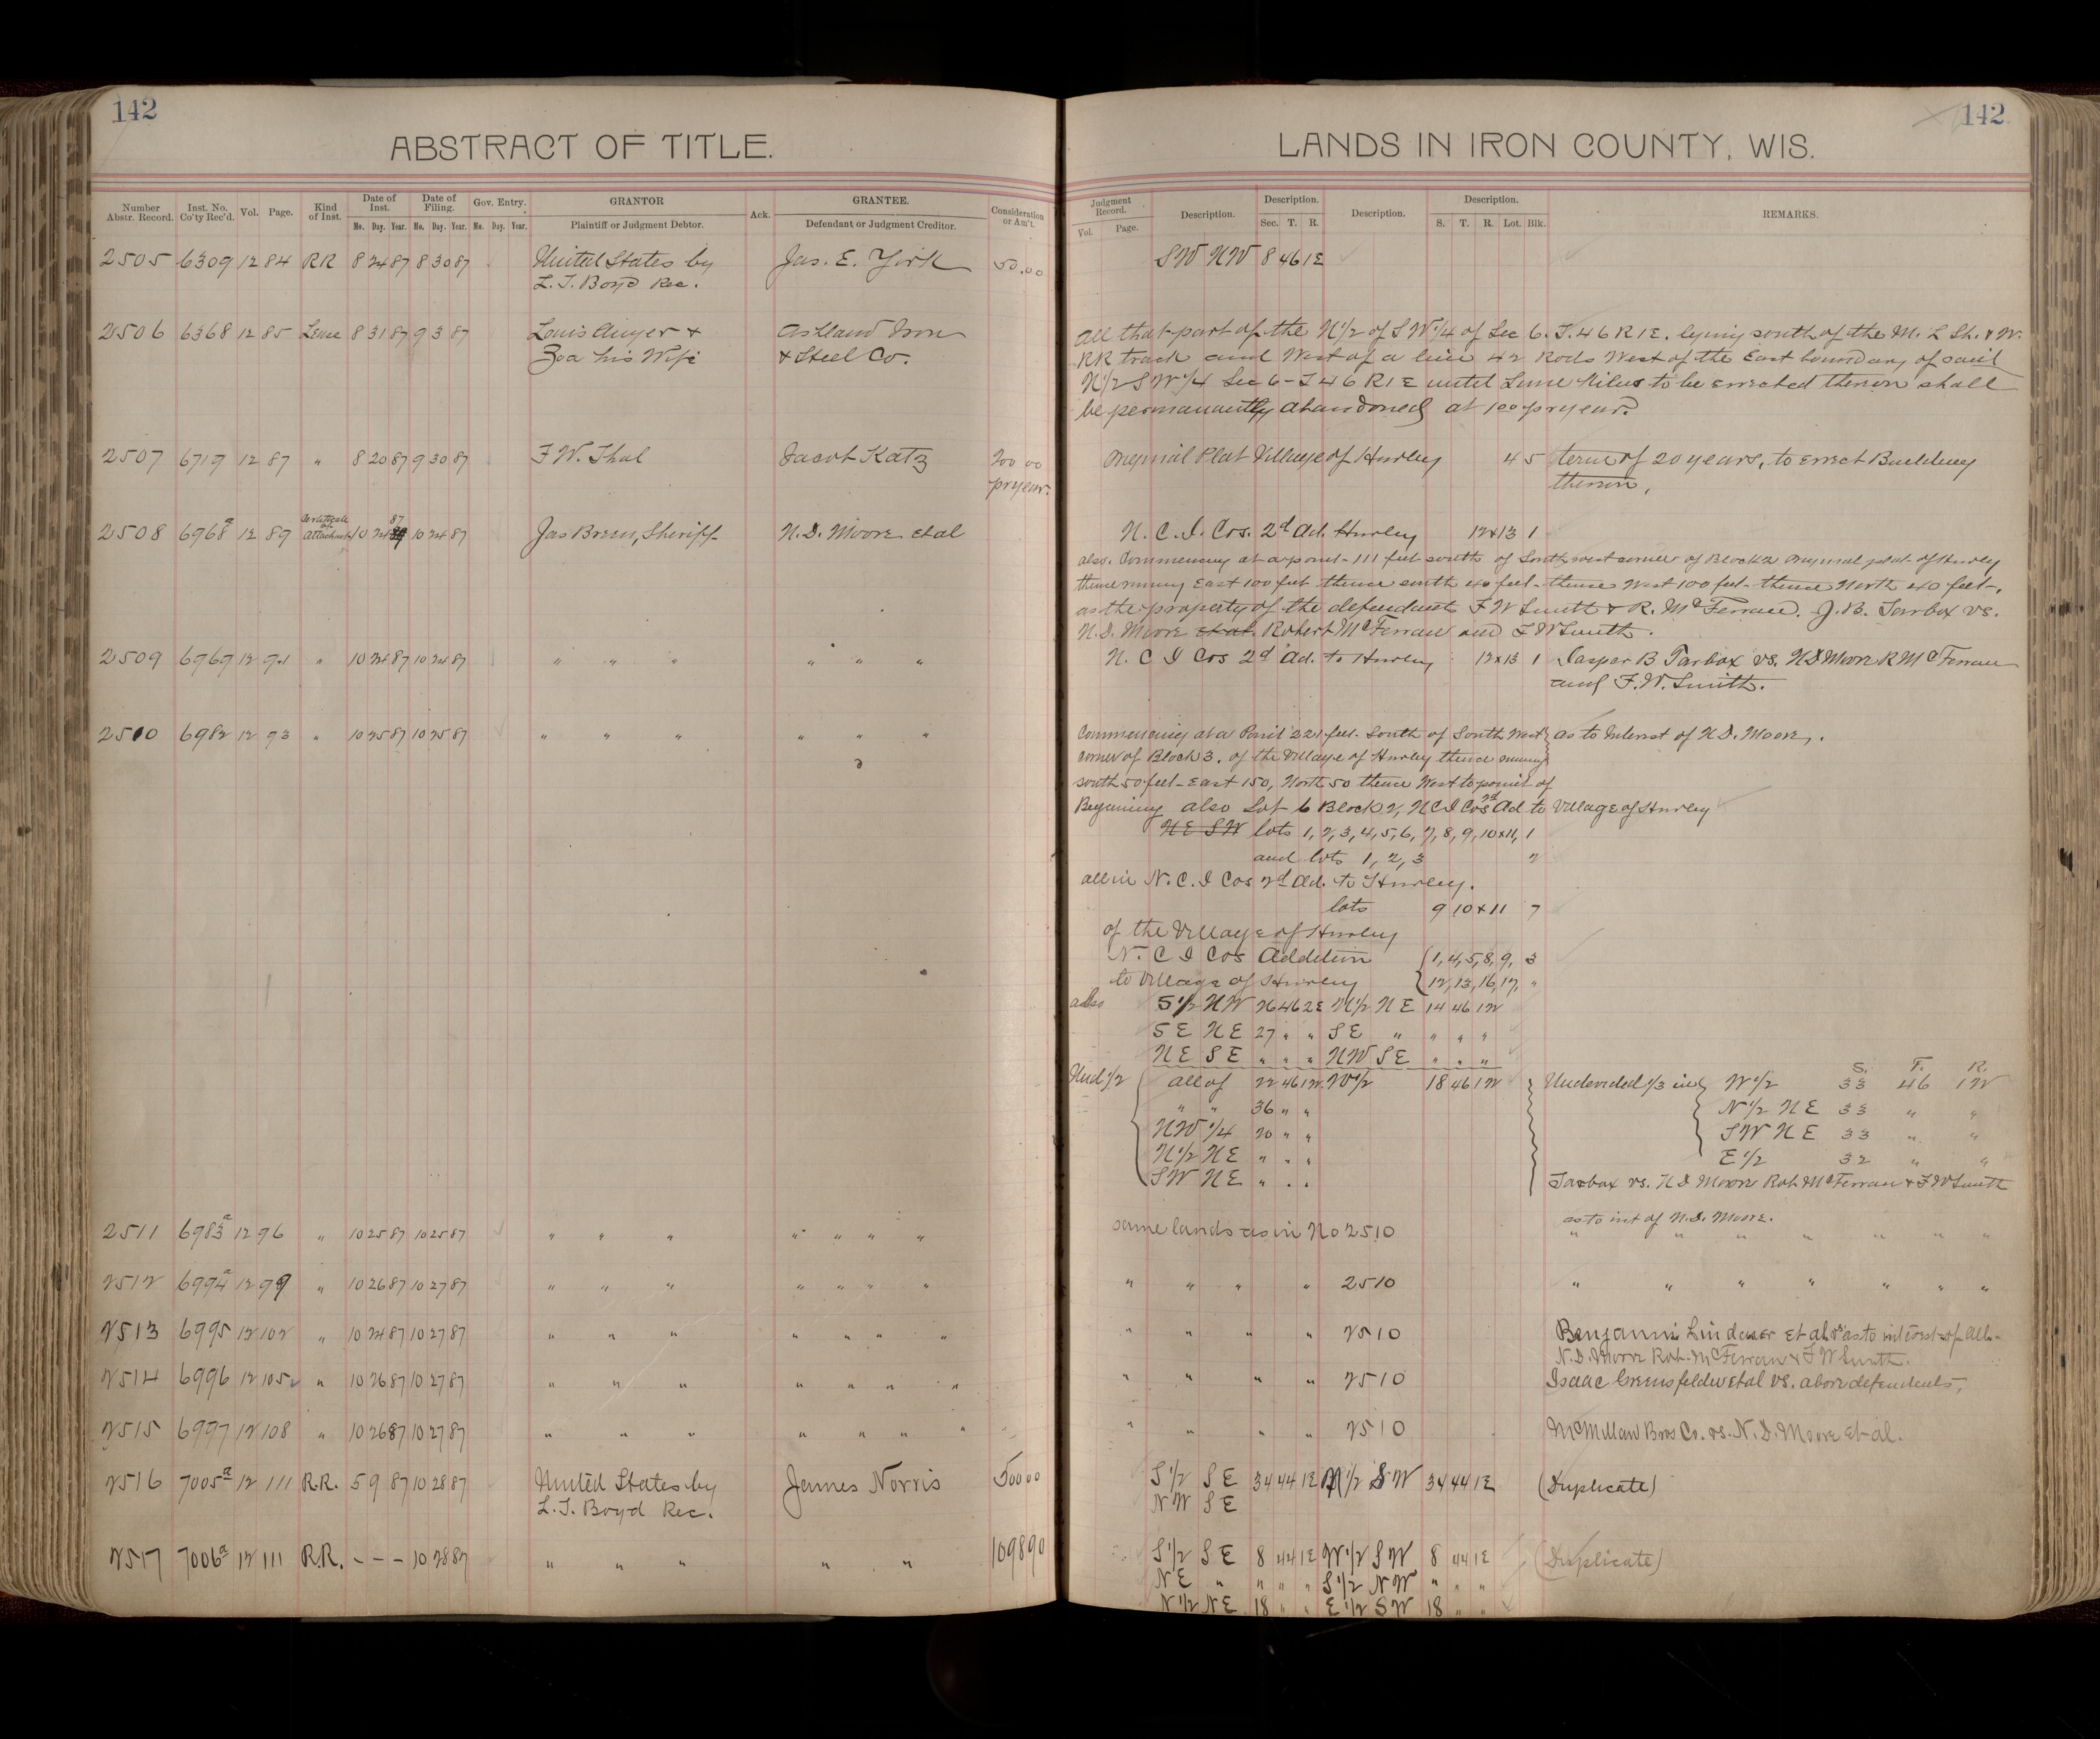 142
ABSTRACT OF TITLE.
Number Abstr. Record. Inst. No. Co'ty Rec'd. Vol. Page. Kind of Inst. Date of Inst. Date of Filing. Gov. Entry. GRANTOR Ack. GRANTEE. Consideration or Am't.
Mo. Day. Year. Mo. Day. Year. Mo. Day. Year. Plaintiff or Judgment Debtor. Defendant or Judgment Creditor.
2505 6309 12 84 RR 8 24 87 8 30 87 United States by Jas. E. York 50.00
L. T. Boyd Rec.
2506 6368 12 85 Lease 8 31 87 9 3 87 Louis Auyer & Ashland Iron
Zoa his Wife & Steel Co.
2507 6719 12 87 " 8 20 87 9 30 87 F. W. Thal Jacob Katz 200 00
pr year.
2508 6968a 12 89 Certificate of attachment 10 24 87 10 24 87 Jas Brew, Sheriff N. D. Moore et al
2509 6969 12 91 " 10 24 87 10 24 87 " " " " " "
2510 6982 12 93 " 10 25 87 10 25 87 " " " " " "
2511 6983a 12 96 " 10 25 87 10 25 87 " " " " " " "
2512 6994a 12 99 " 10 26 87 10 27 87 " " " " " " "
2513 6995 12 102 " 10 24 87 10 27 87 " " " " " " "
2514 6996 12 105 " 10 26 87 10 27 87 " " " " " " "
2515 6997 12 108 " 10 26 87 10 27 87 " " " " " " "
2516 7005a 12 111 R.R. 5 9 87 10 28 87 United States by James Norris 500 00
L. T. Boyd Rec.
2517 7006a 12 111 R.R. - - - 10 28 87 " " " " " 1098 90
142
LANDS IN IRON COUNTY, WIS.
Judgment Record. Description. Description. Description. Description. REMARKS.
Vol. Page. Sec. T. R. S. T. R. Lot. Blk.
SW NW 8 46 1E
All that part of the N1/2 of SW1/4 of Sec 6. T. 46 R 1 E. lying south of the M. L Sh. & W.
RR track and West of a line 42 Rods West of the East boundary of said
N1/2 SW1/4 Sec 6 - T 46 R 1 E until Lime Kilns to be errected theron shall
be permanantly abandoned at 1 00 pr year.
Original Plat Village of Hurley 4 5 term of 20 years, to Errect Building
theron,
N. C. I. Cos. 2d Ad. Hurley 12 & 13 1
also. Commencing at a point 111 feet south of South west corner of Block 2 original plat of Hurley
thence runing East 100 feet thence south 40 feet thence West 100 feet thence North 40 feet,
as the property of the defendants F W Smith & R. McFerran. J. B. Tarbox vs.
N. D. Moore et al. Robert McFerran and F W Smith.
N. C I Cos 2d Ad. to Hurley 12 & 13 1 Jasper B Tarbox vs. N D Moore R McFerran
and F. W. Smith.
Commencing at a Point 221 feet South of South West as to Interest of N. D. Moore,.
corner of Block 3. of the Village of Hurley thence runing
south 50 feet East 150, North 50 thence West to point of
Beginning also Lot 6 Block 2, N C I Cos 2d Ad to Village of Hurley
NE SW lots 1, 2, 3, 4, 5, 6, 7, 8, 9, 10 & 11, 1
and lots 1, 2, 3 2
all in N. C. I Cos 2d Ad. to Hurley.
lots 9 10 & 11 7
of the Village of Hurley
N. C I Cos Addition 1, 4, 5, 8, 9, 3
to Village of Hurley 12, 13, 16, 17, "
also S 1/2 NW 26 46 2E N1/2 NE 14 46 1W
SE NE 27 " " SE " " " "
NE SE " " " NW SE " " "
Und 1/2 all of 22 46 1W W1/2 18 46 1W Undevided 1/3 in W 1/2 S. 33 T. 46 R. 1W
" " 36 " " N 1/2 NE 33 " "
NW 1/4 20 " " SW NE 33 " "
N1/2 NE " " " E 1/2 32 " "
SW NE " " " Tarbox vs. N D Moore Rob. McFerran & F W Smith
as to int of N. D. Moore.
same lands as in No 2510 " " " " " " "
" " " " 2510 " " " " " " "
" " " " 2510 Benjamin Lindauer et al vs as to interest of all
N. D. Moore Rob. McFerran & F W Smith.
" " " " 2510 Isaac Greensfelder et al vs. above defendents,
" " " " 2510 McMillan Bros Co. vs. N. D. Moore et al.
S 1/2 SE 34 44 1E N1/2 SW 34 44 1E (Duplicate)
NW SE
S 1/2 SE 8 44 1E W1/2 SW 8 44 1E (Duplicate)
NE " " " " S 1/2 NW " " "
N 1/2 NE 18 " " E 1/2 SW 18 " "